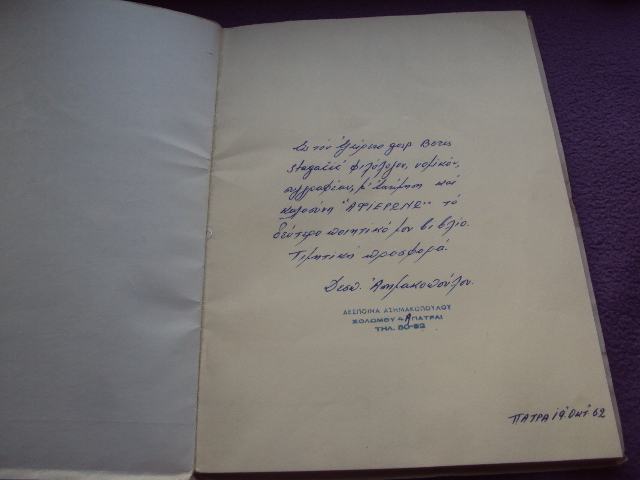 Εἰς τὸν ἐξαίρετο Boris
φιλόλογον, νομικόν,
συγγραφέαν, μ' ἐκτίμηση καὶ
καλοσύνη "ΑΦΙΕΡΩΝΩ" τὸ
δεύτερο ποιητικό μου βιβλίο.
Τιμητική προσφορά.
Δεσπ. Ἀσημακοπούλου.
ΔΕΣΠΟΙΝΑ ΑΣΗΜΑΚΟΠΟΥΛΟΥ
ΣΟΛΩΜΟΥ 4Α ΠΑΤΡΑΙ
ΤΗΛ. 80-62
ΠΑΤΡΑ 19 Οκτ 62